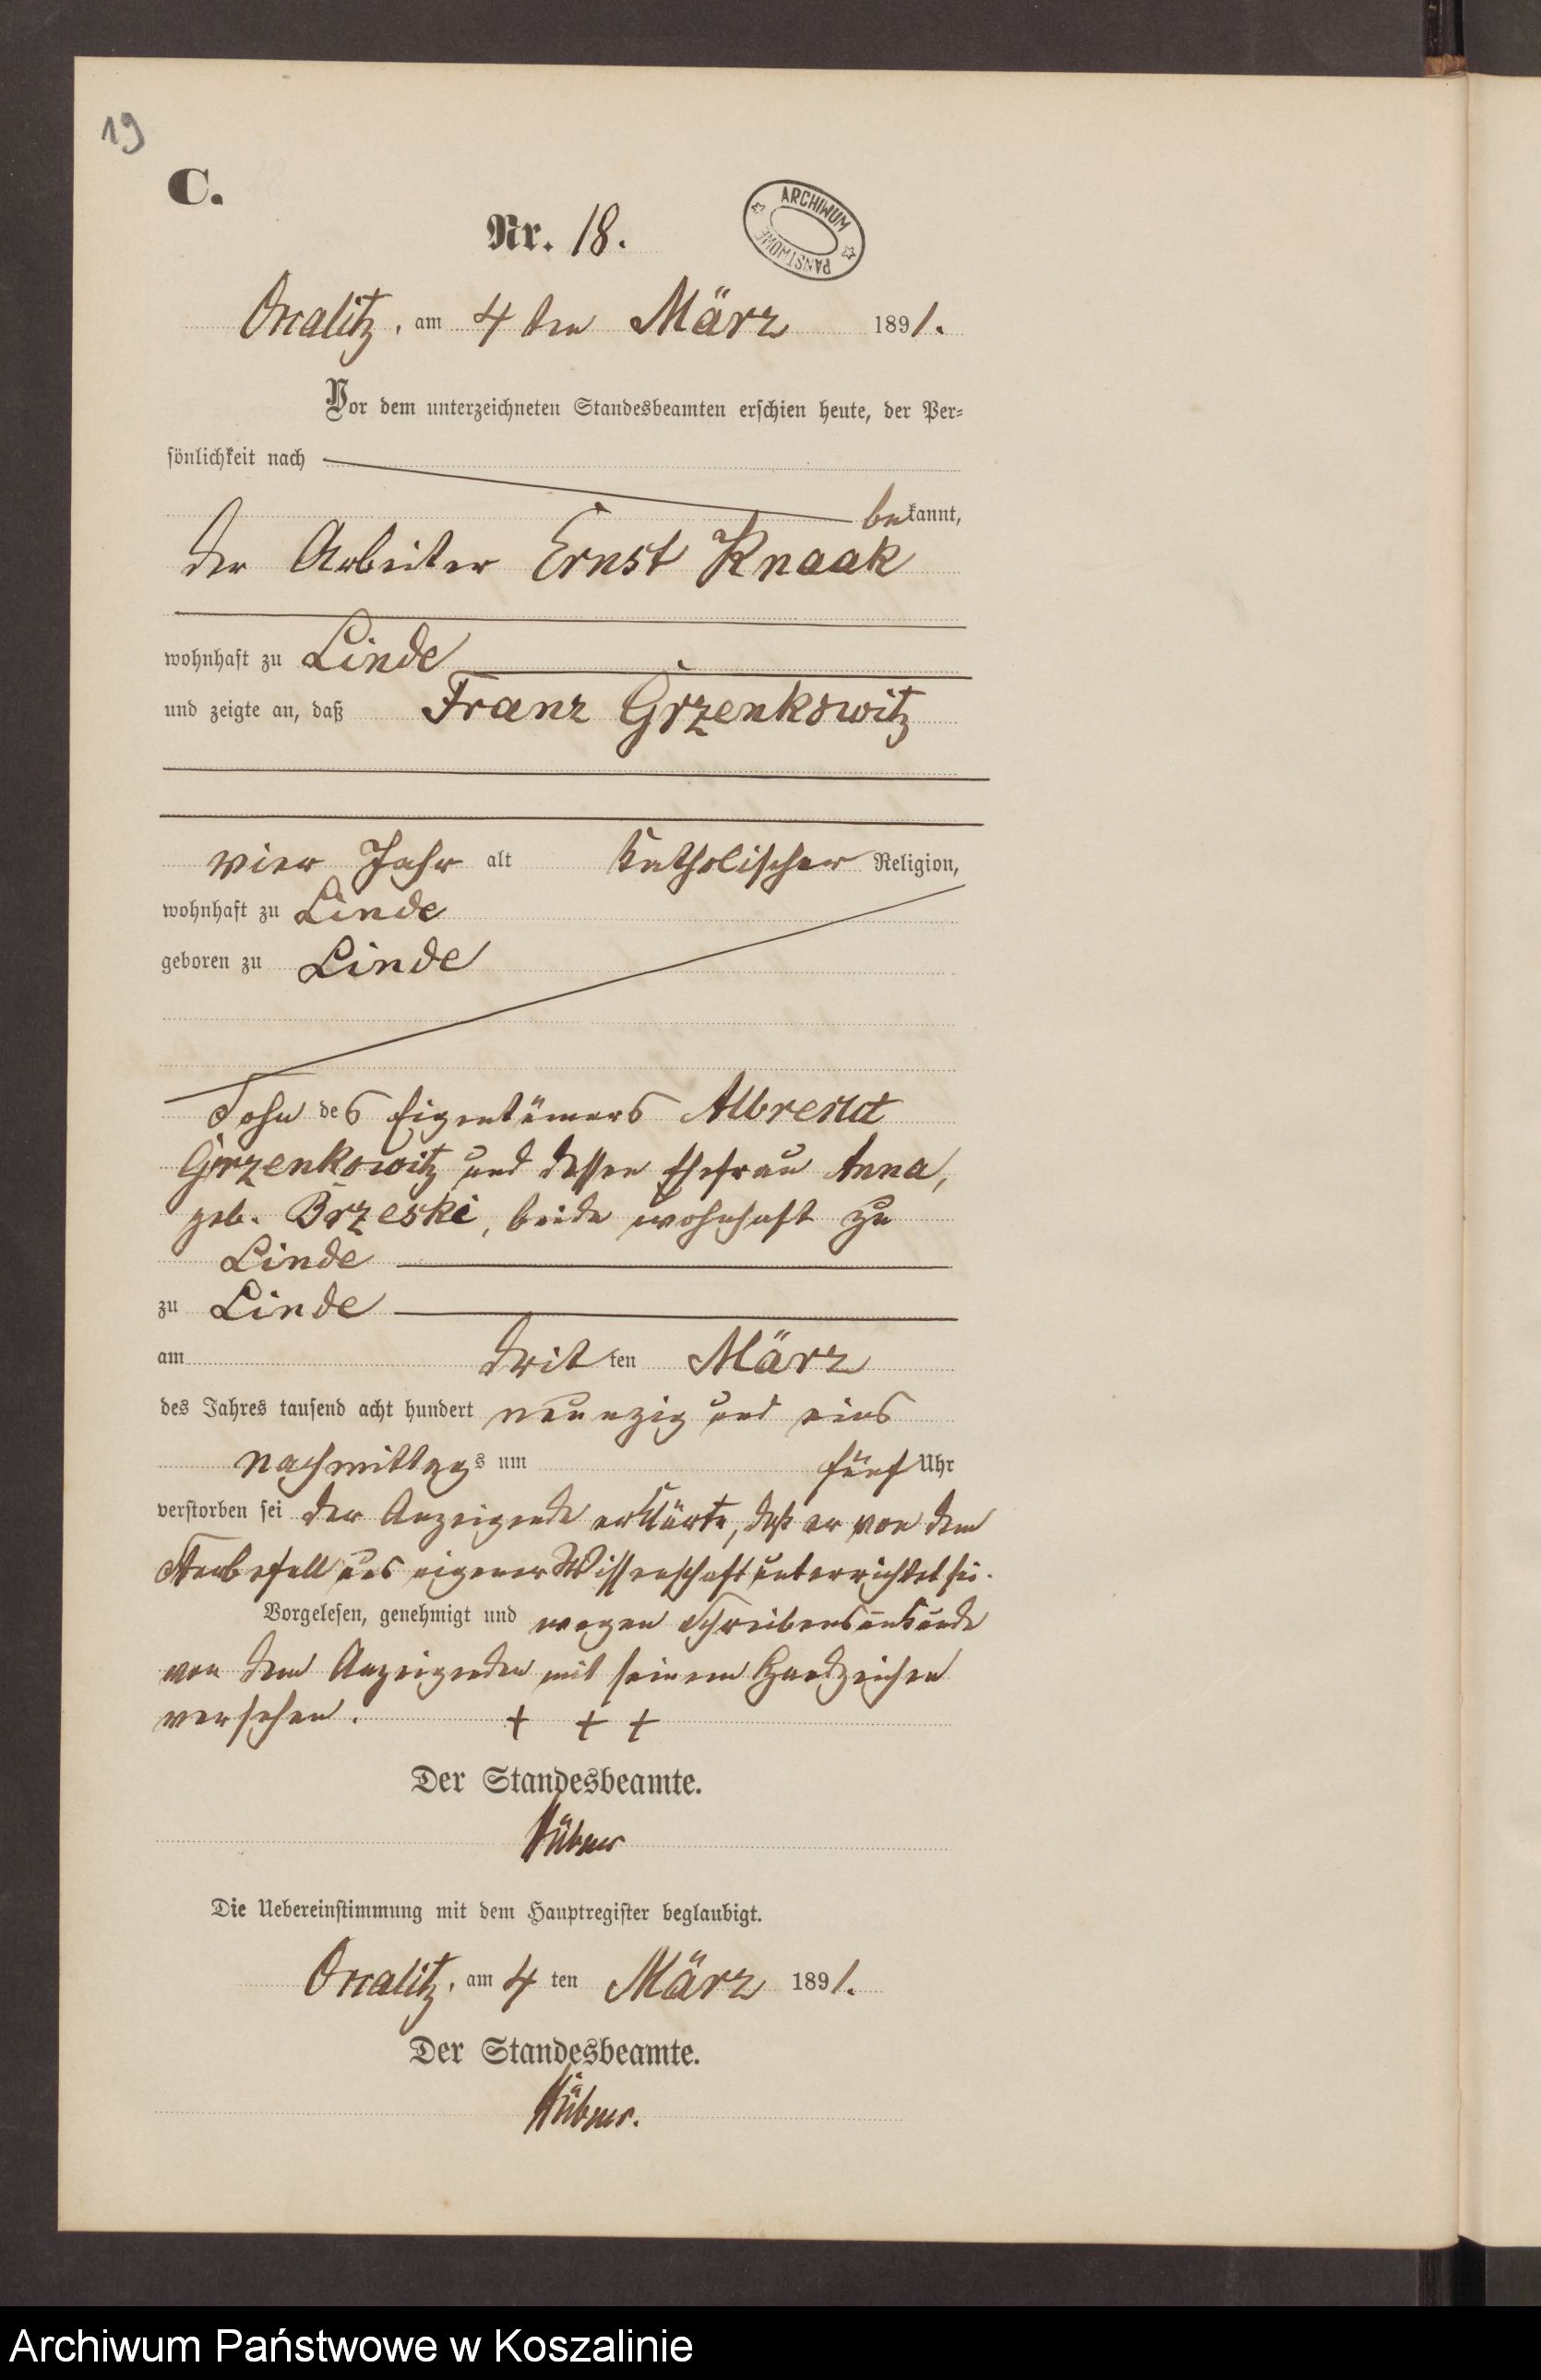 19
C.
Nr. 18.
ARCHIWUM
PAŃSTWOWE
Oscalitz, am 4ten März 1891.
Vor dem unterzeichneten Standesbeamten erschien heute, der Per-
sönlichkeit nach
bekannt,
der Arbeiter Ernst Knaak
wohnhaft zu Linde
und zeigte an, daß Franz Grzenkowitz
vier Jahr alt katholischer Religion,
wohnhaft zu Linde
geboren zu Linde
Sohn des Eigentümers Albrecht
Grzenkowitz und dessen Ehefrau Anna,
geb. Brzeski, beide wohnhaft zu
Linde
zu Linde
am dritten März
des Jahres tausend acht hundert neunzig und eins
nachmittags um fünf Uhr
verstorben sei der Anzeigende erklärte, daß er von dem
Sterbefall aus eigener Wissenschaft unterrichtet sei.
Vorgelesen, genehmigt und wegen Schreibensunkunde
von dem Anzeigenden mit seinem Handzeichen
versehen. + + +
Der Standesbeamte.
Hübner
Die Uebereinstimmung mit dem Hauptregister beglaubigt.
Oscalitz, am 4ten März 1891.
Der Standesbeamte.
Hübner.
Archiwum Państwowe w Koszalinie